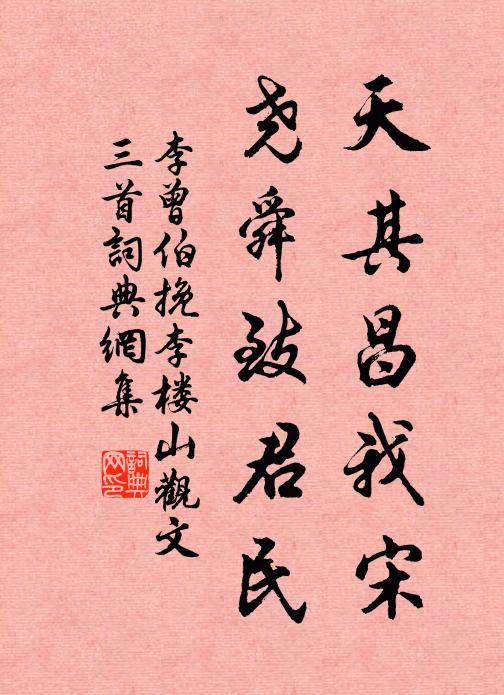 天其昌我宋
尧舜致君民
李曾伯挽李楼山觀文
三首詞典網集
詞典网印